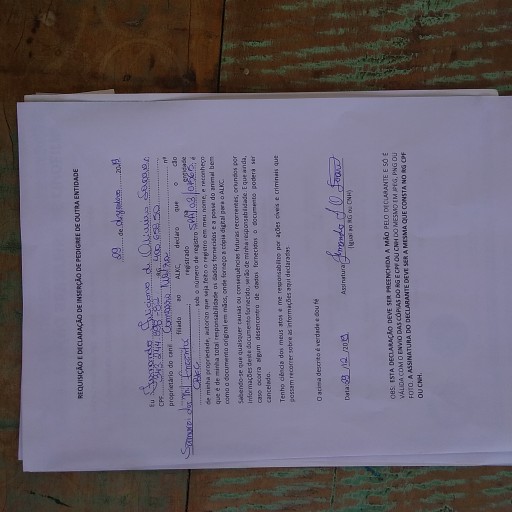 REQUISIÇÃO E DECLARAÇÃO DE INSERÇÃO DE PEDIGREE DE OUTRA ENTIDADE
29 de dezembro 2019
Eu
CPF RG
proprietário do canil nº
filiado ao ALKC, declaro que o cão
registrado na entidade
sob o numero de registro é
de minha propriedade, autorizo que seja feito o registro em meu nome, e reconheço
que é de minha total responsabilidade os dados fornecidos e a posse do animal bem
como o documento original em mãos, onde forneço a cópia digital para o ALKC.
Sabendo-se que quaisquer causas ou consequências futuras recorrentes, oriundos por
informações deste documento fornecido, serão de minha responsabilidade. E que ainda,
caso ocorra algum desencontro de dados fornecidos o documento poderá ser
cancelado.
Tenho ciência dos meus atos e me responsabilizo por ações cíveis e criminais que
possam recorrer sobre as informações aqui declaradas.
O acima descrito é verdade e dou fé
Data 29/12/2019 Assinatura
(Igual em RG ou CNH)
OBS: ESTA DECLARAÇÃO DEVE SER PREENCHIDA A MÃO PELO DECLARANTE E SÓ É
VÁLIDA COM O ENVIO DAS CÓPIAS DO RG E CPF OU CNH DO MESMO EM JPEG, PNG OU
FOTO. A ASSINATURA DO DECLARANTE DEVE SER A MESMA QUE CONSTA NO RG CPF
OU CNH.